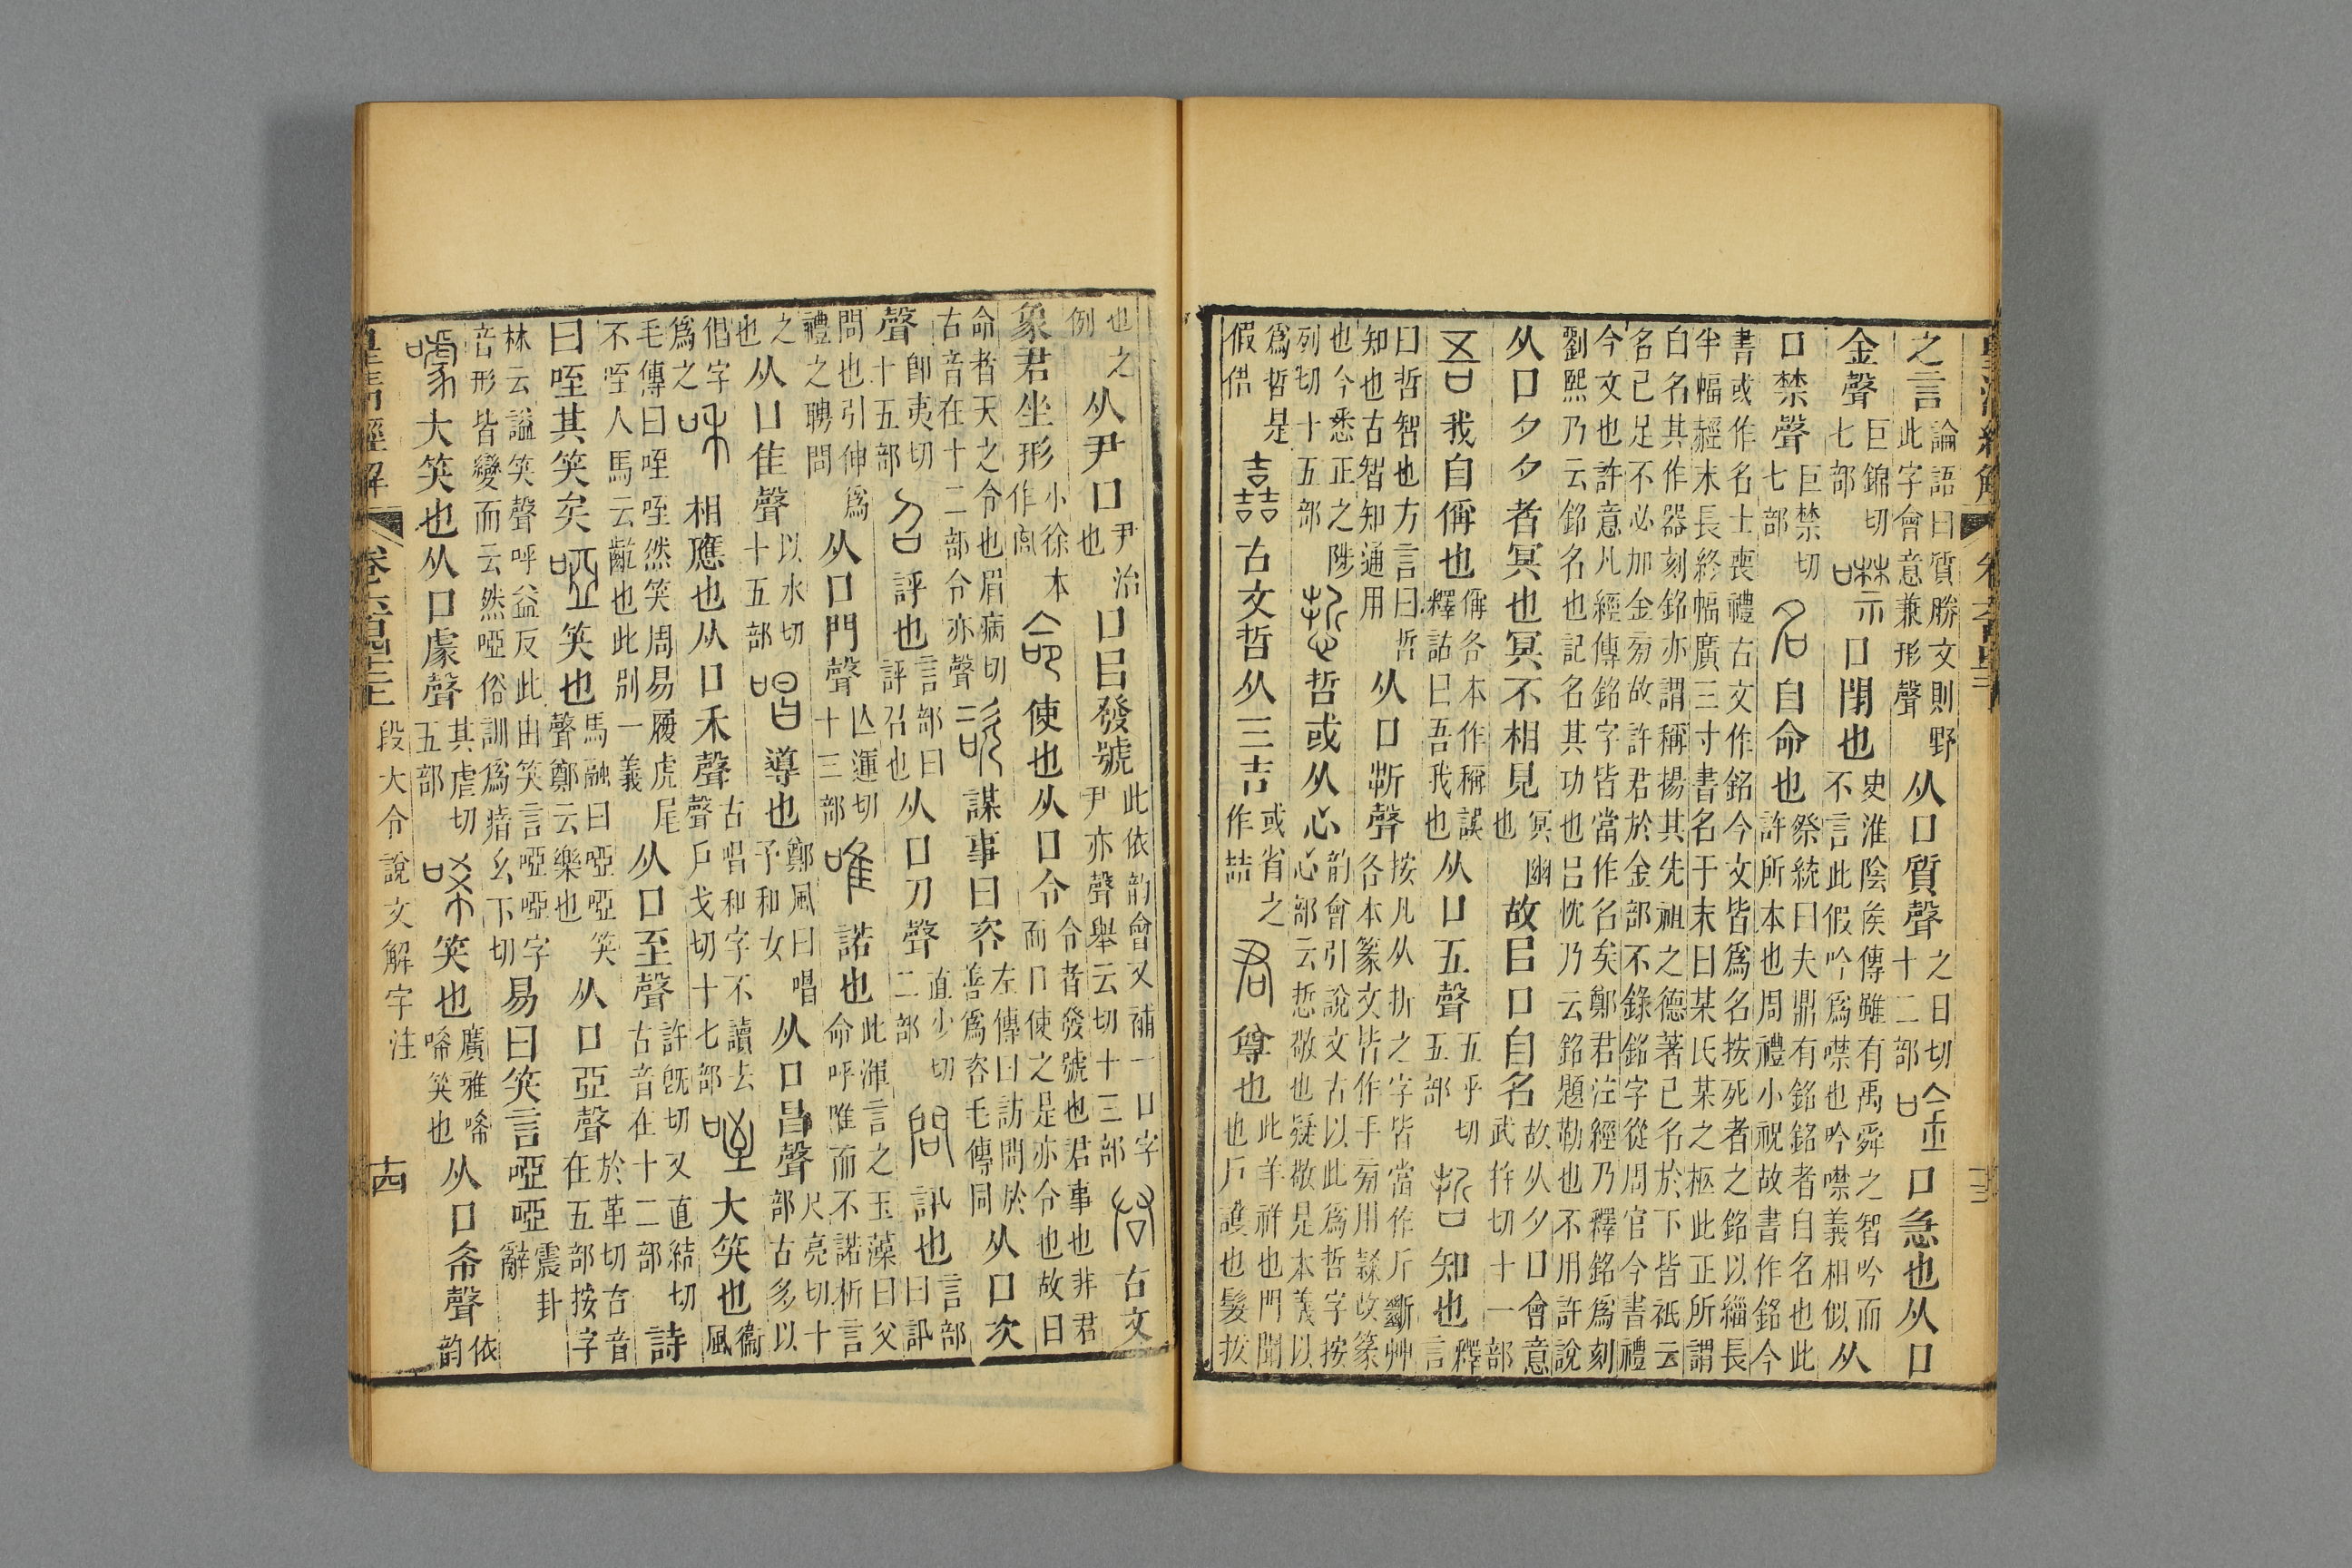 皇清經解 卷六百四十二 十三
之言論語曰質勝文則野此字會意兼形聲从口質聲之日切十二部 唫 口急也从口
金聲巨錦切七部 噤 口閉也史淮陰侯傳雖有禹舜之智吟而不言此假吟為噤也吟噤義相似从
口禁聲巨禁切七部 名 自命也祭統曰夫鼎有銘銘者自名也此許所本也周禮小祝故書作銘今
書或作名士喪禮古文作銘今文皆爲名按死者之銘以緇長半幅䞓末長終幅廣三寸書名于末曰某氏某之柩此正所謂
自名其作器刻銘亦謂稱揚其先祖之德著己名於下皆祇云名已足不必加金旁故許君於金部不錄銘字從周官今書禮
今文也許意凡經傳銘字皆當作名矣鄭君注經乃釋銘爲刻劉熙乃云銘名也記名其功也呂忱乃云銘題勒也不用許說
从口夕夕者冥也冥不相見冥幽也故㠯口自名故从夕口會意武幷切十一部
吾 我自偁也偁各本作稱誤釋詁曰吾我也从口五聲五乎切五部 哲 知也釋言
曰哲智也方言曰哲知也古智知通用从口斯聲按凡从折之字皆當作斤斷艸各本篆文皆作手旁用隸改篆
也今悉正之陟列切十五部 悊 哲或从心韵會引說文古以此爲哲字按心部云悊敬也疑敬是本義以
爲哲是假借 嚞 古文哲从三吉或省之作喆 君 尊也此羊祥也門聞也戶護也髮拔
也之例从尹口尹治也口㠯發號此依韵會又補一口字尹亦聲舉云切十三部 𠱭 古文
象君坐形小徐本作𠱩 命 使也从口令令者發號也君事也非君而口使之是亦令也故曰
命者天之令也眉病切古音在十二部令亦聲 咨 謀事曰咨左傳曰訪問於善爲咨毛傳同从口次
聲卽夷切十五部 召 評也言部曰評召也从口刀聲直少切二部 問 訊也言部曰訊
問也引伸爲禮之聘問从口門聲亾運切十三部 唯 諾也此渾言之玉藻曰父命呼唯而不諾析言
之也从口隹聲以水切十五部 唱 導也鄭風曰唱予和女从口昌聲尺亮切十部古多以
倡字爲之 和 相應也从口禾聲古唱和字不讀去聲戶戈切十七部 咥 大笑也衞風
毛傳曰咥咥然笑周易履虎尾不咥人馬云齕也此別一義从口至聲許旣切又直結切古音在十二部 詩
曰咥其笑矣 啞 笑也馬融曰啞啞笑聲鄭云樂也从口亞聲於革切古音在五部按字
林云謚笑聲呼益反此音形皆變而云然啞俗由笑言啞啞字訓爲瘖幺下切易曰笑言啞啞震卦辭
噱 大笑也从口豦聲其虐切五部 唏 笑也廣雅唏唏笑也从口㣇聲依韵
皇淸經解 卷六百四十二 段大令說文解字注 十四